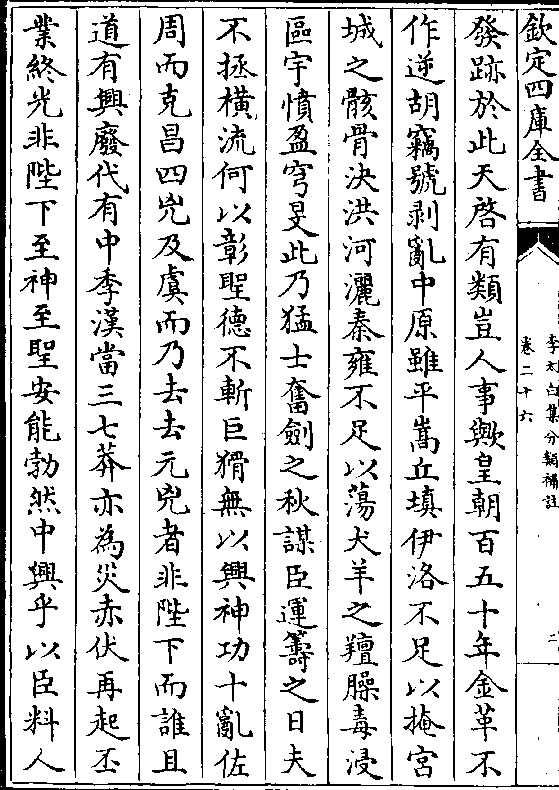 欽定四庫全書
李太白集分類補註
卷二十六
二
發跡於此天啓有類豈人事歟皇朝百五十年金革不
作逆胡竊號剥亂中原雖平嵩丘填伊洛不足以掩宫
城之骸骨決洪河灑秦雍不足以蕩犬羊之羶臊毒浸
區宇憤盈穹旻此乃猛士奮劒之秋謀臣運籌之日夫
不拯横流何以彰聖德不斬巨猾無以興神功十亂佐
周而克昌四凶及虞而乃去去元兇者非陛下而誰且
道有興廢代有中季漢當三七莽亦為災赤伏再起丕
業終光非陛下至神至聖安能勃然中興乎以臣料人